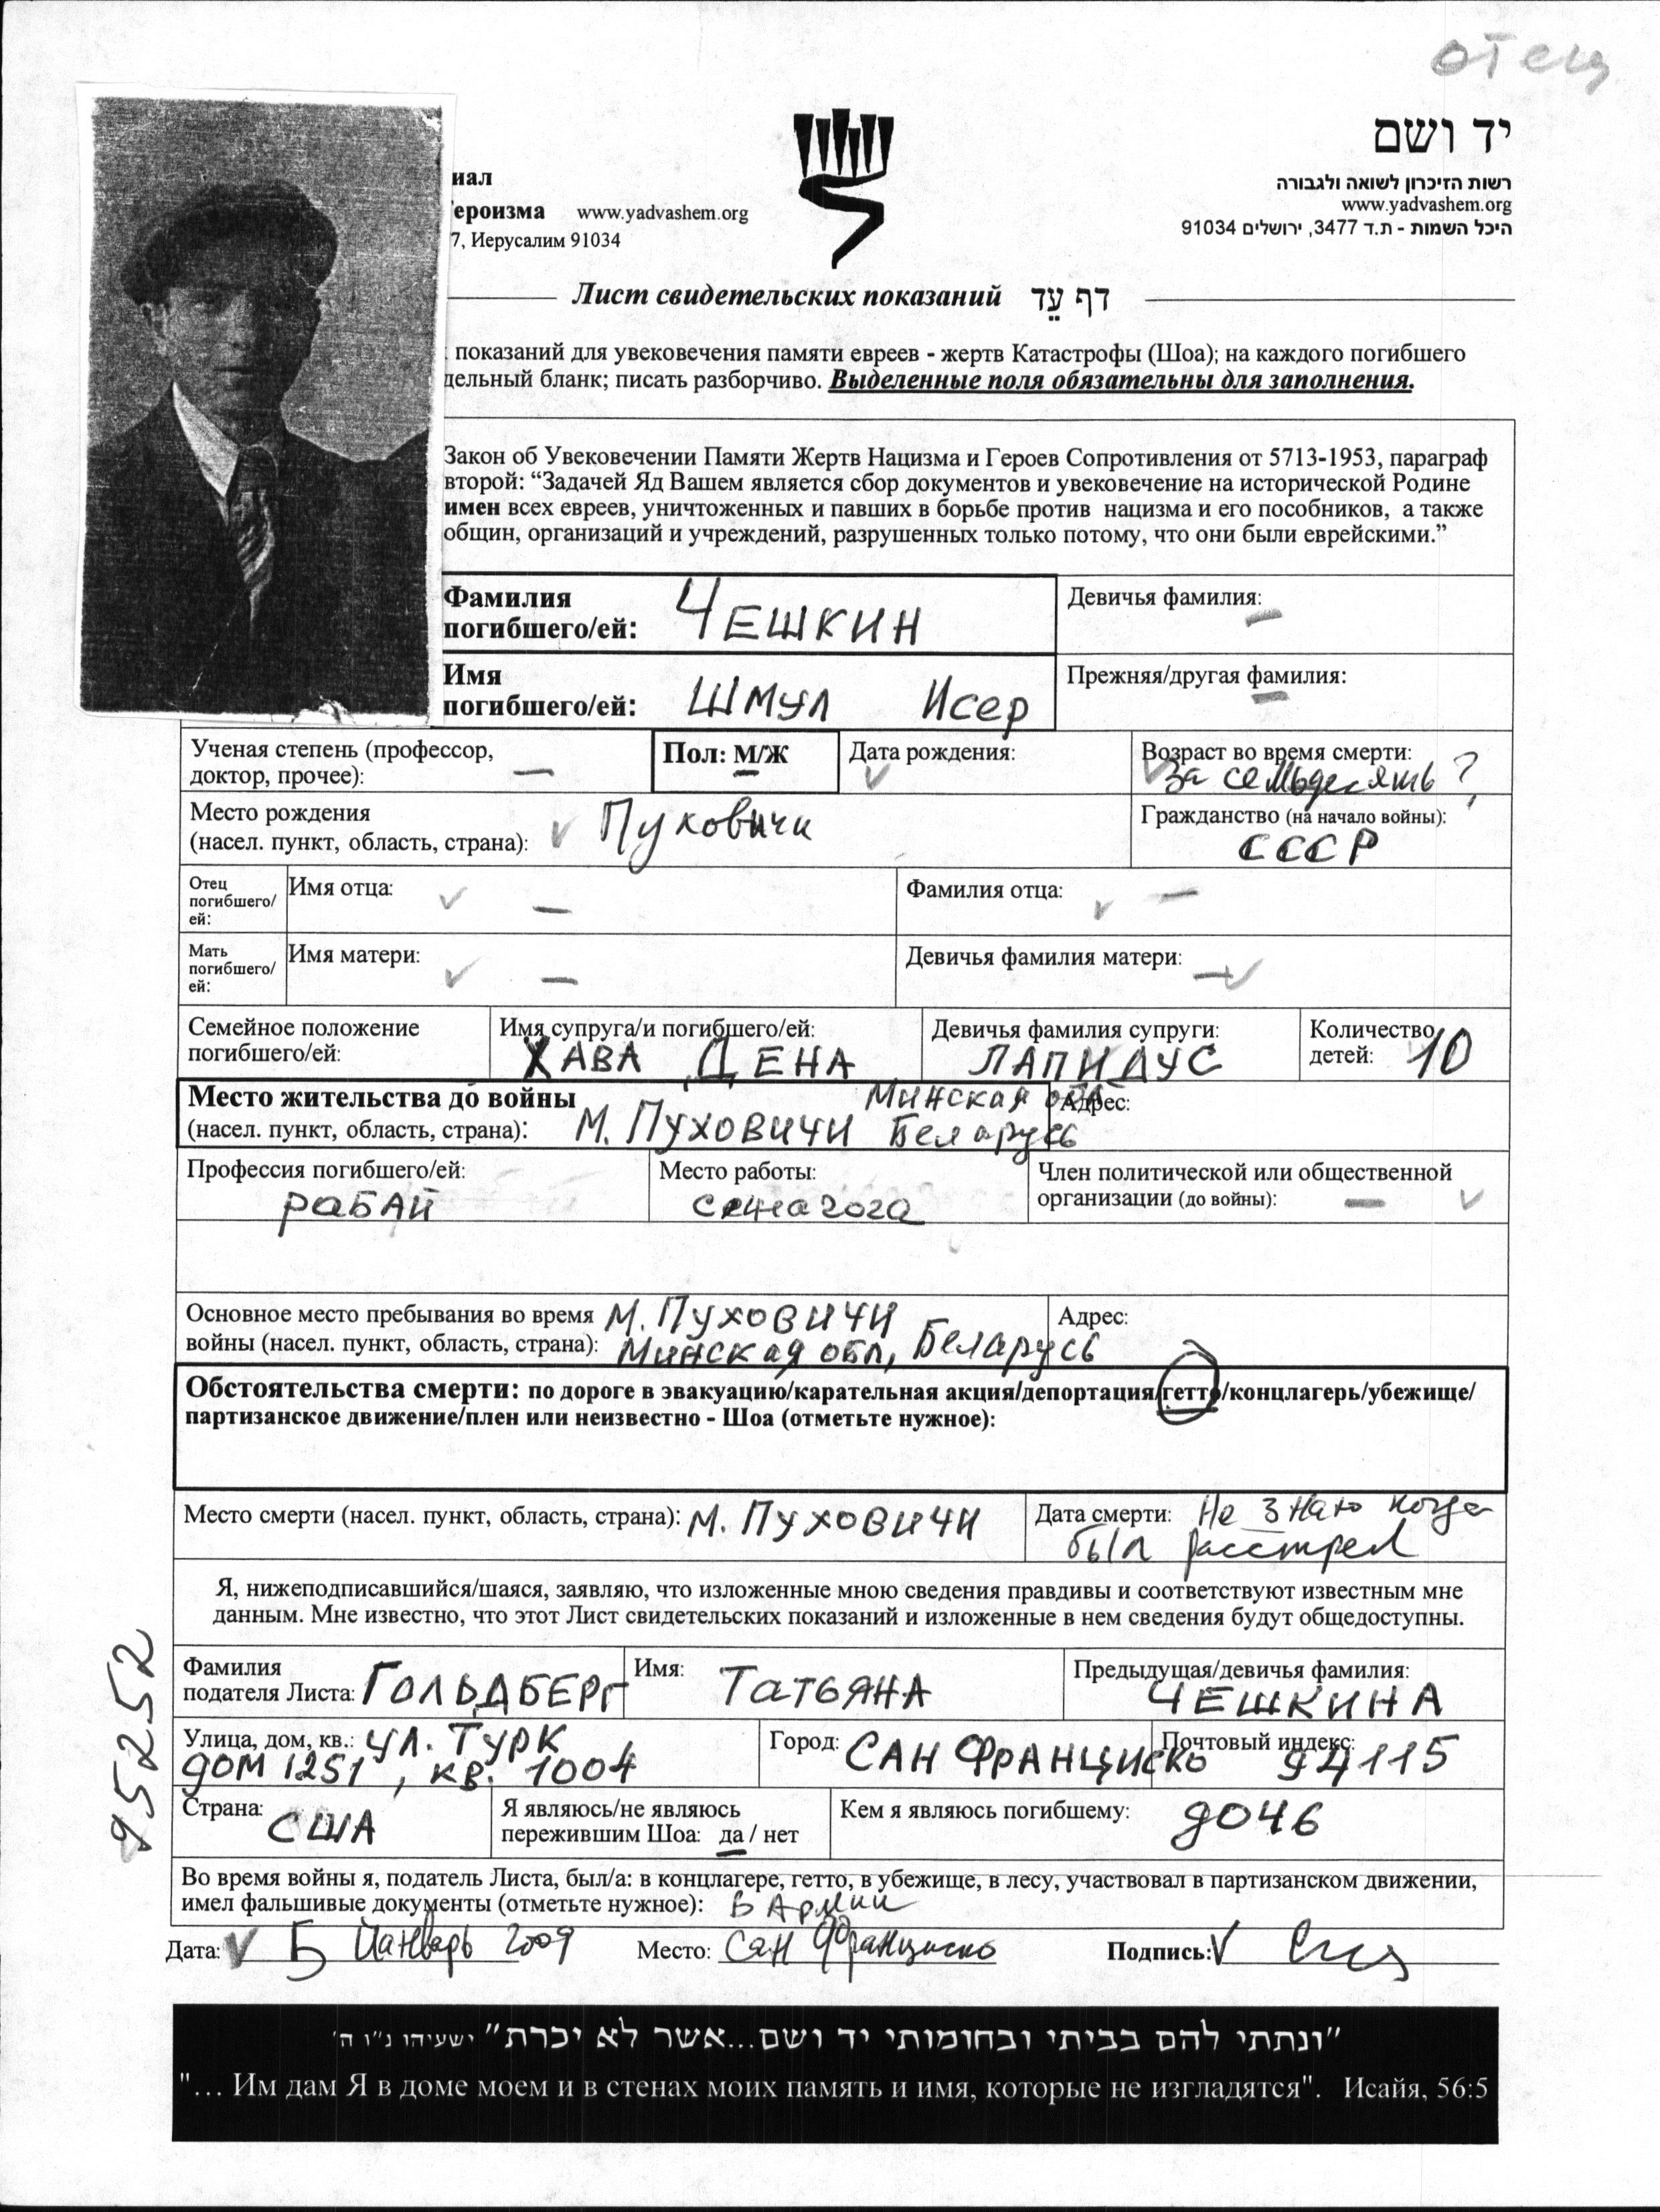 отец
יד ושם
רשות הזיכרון לשואה ולגבורה
www.yadvashem.org
היכל השמות - ת.ד 3477, ירושלים 91034
иал
ероизма www.yadvashem.org
7, Иерусалим 91034
Лист свидетельских показаний דף עֵד
показаний для увековечения памяти евреев - жертв Катастрофы (Шоа); на каждого погибшего
дельный бланк; писать разборчиво. Выделенные поля обязательны для заполнения.
Закон об Увековечении Памяти Жертв Нацизма и Героев Сопротивления от 5713-1953, параграф
второй: “Задачей Яд Вашем является сбор документов и увековечение на исторической Родине
имен всех евреев, уничтоженных и павших в борьбе против нацизма и его пособников, а также
общин, организаций и учреждений, разрушенных только потому, что они были еврейскими.”
Фамилия погибшего/ей: ЧЕШКИН
Девичья фамилия: —
Имя погибшего/ей: ШМУЛ Исер
Прежняя/другая фамилия: —
Ученая степень (профессор, доктор, прочее): —
Пол: М/Ж
Дата рождения:
Возраст во время смерти: За семьдесять ?
Место рождения (насел. пункт, область, страна): Пуховичи
Гражданство (на начало войны): СССР
Отец погибшего/ей:
Имя отца: —
Фамилия отца: —
Мать погибшего/ей:
Имя матери: —
Девичья фамилия матери: —
Семейное положение погибшего/ей:
Имя супруга/и погибшего/ей: ХАВА ДЕНА
Девичья фамилия супруги: ЛАПИДУС
Количество детей: 10
Место жительства до войны (насел. пункт, область, страна): М. ПУХОВИЧИ Минская обл Беларусь
Адрес:
Профессия погибшего/ей: РАБАЙ
Место работы: сенагога
Член политической или общественной организации (до войны): —
Основное место пребывания во время войны (насел. пункт, область, страна): М. ПУХОВИЧИ Минская обл, Беларусь
Адрес:
Обстоятельства смерти: по дороге в эвакуацию/карательная акция/депортация/гетто/концлагерь/убежище/
партизанское движение/плен или неизвестно - Шоа (отметьте нужное):
Место смерти (насел. пункт, область, страна): М. ПУХОВИЧИ
Дата смерти: Не знаю когда был расстрел
Я, нижеподписавшийся/шаяся, заявляю, что изложенные мною сведения правдивы и соответствуют известным мне
данным. Мне известно, что этот Лист свидетельских показаний и изложенные в нем сведения будут общедоступны.
Фамилия подателя Листа: ГОЛЬДБЕРГ
Имя: ТАТЬЯНА
Предыдущая/девичья фамилия: ЧЕШКИНА
Улица, дом, кв.: УЛ. ТУРК ДОМ 1251, КВ. 1004
Город: САН ФРАНЦИСКО
Почтовый индекс: 94115
Страна: США
Я являюсь/не являюсь пережившим Шоа: да / нет
Кем я являюсь погибшему: дочь
Во время войны я, податель Листа, был/а: в концлагере, гетто, в убежище, в лесу, участвовал в партизанском движении,
имел фальшивые документы (отметьте нужное): В Армии
Дата: 5 Йанварь 2009 Место: Сан Франциско Подпись:
95252
"ונתתי להם בביתי ובחומותי יד ושם...אשר לא יכרת" ישעיהו נ"ו ה'
"... Им дам Я в доме моем и в стенах моих память и имя, которые не изгладятся". Исайя, 56:5